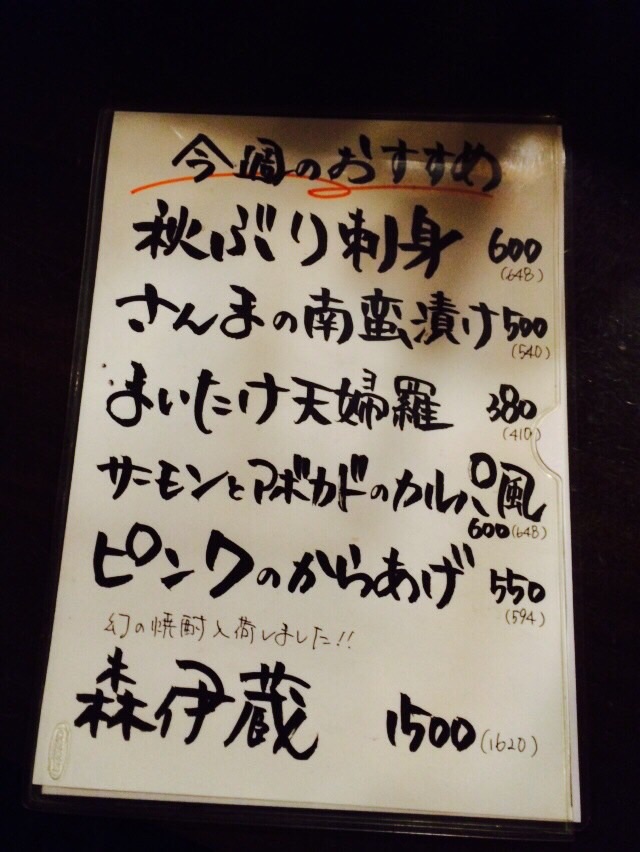 今週のおすすめ
秋ぶり刺身 600
(648)
さんまの南蛮漬け 500
(540)
まいたけ天婦羅 380
(410)
サーモンとアボカドのカルパ風
600(648)
ピンクのからあげ 550
(594)
幻の焼酎入荷しました!!
森伊蔵 1500(1620)